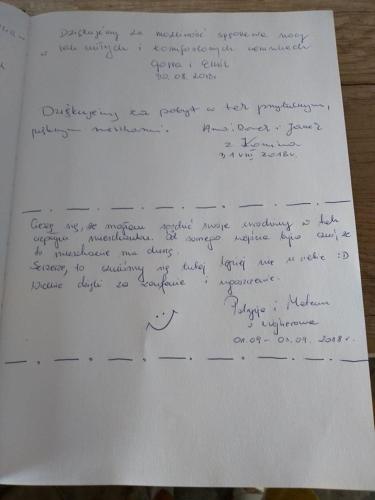 Dziękujemy za możliwość spędzenia nocy
w tak miłych i komfortowych warunkach
Gosia i Emil
30.08.2018r.
Dziękujemy za pobyt w tak przytulnym,
pięknym mieszkaniu.
Ania, i Janek
z Konina
31 VIII 2018r.
Cieszę się, że mogłam spędzić swoje urodziny w tak
mieszkaniu. Od samego wejścia było czuć, że
to mieszkanie ma duszę.
Szczerze, to czuliśmy się tutaj lepiej niż u siebie :D
Wielkie dzięki za zaufanie i ugoszczenie.
:)
Patrycja i Mateusz
z Wejherowa
01.09 - 03.09.2018r.